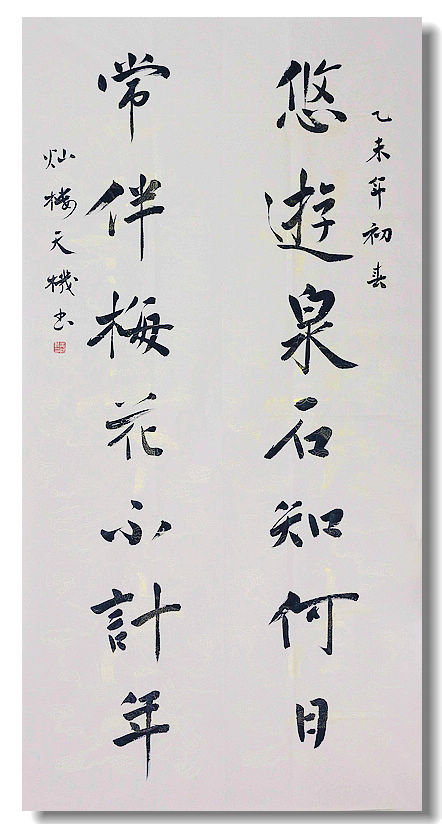 乙未年初春
悠遊泉石知何日
常伴梅花不計年
灿楼天機书